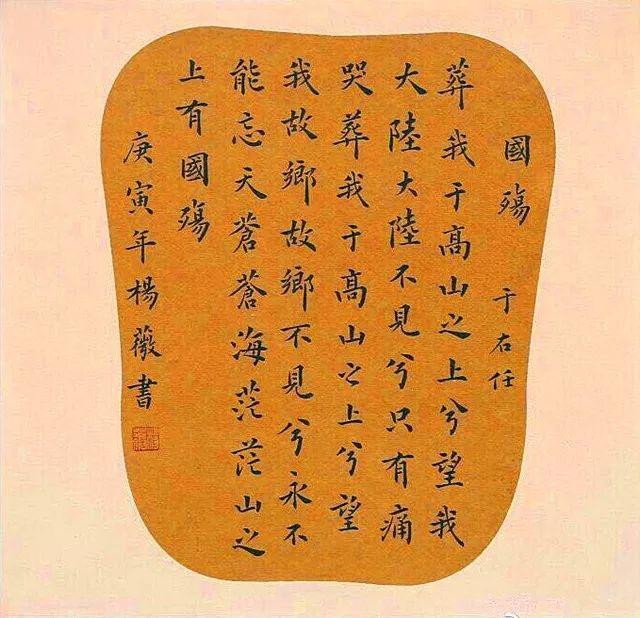 國殤
于右任
葬我于高山之上兮望我
大陸大陸不見兮只有痛
哭葬我于高山之上兮望
我故鄉故鄉不見兮永不
能忘天蒼蒼海茫茫山之
上有國殤
庚寅年楊薇書